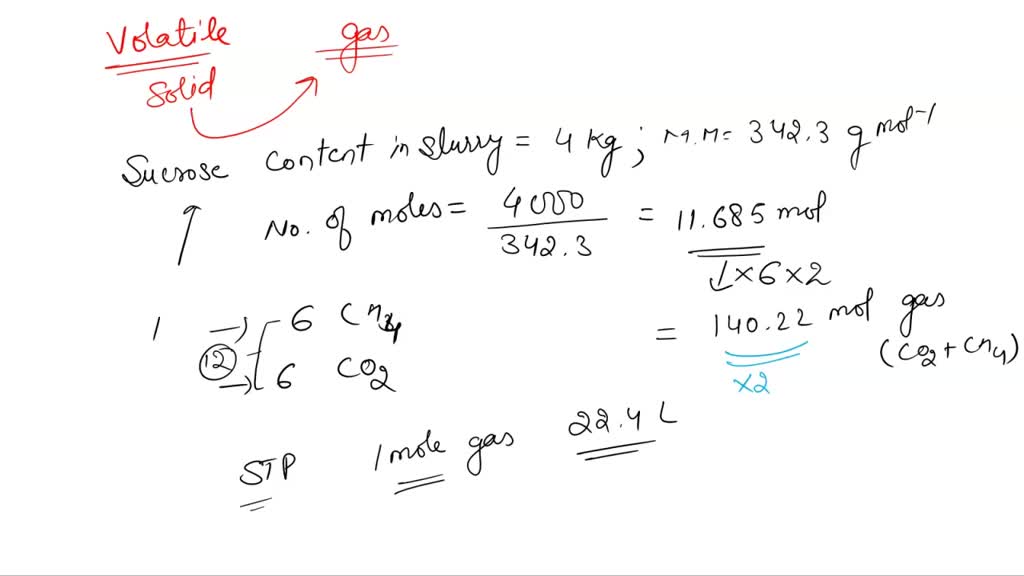 Volatile gas
Solid
Sucrose content in slurry = 4 kg ; M.M = 342.3 g mol-1
No. of moles = 4000 / 342.3 = 11.685 mol
↓×6×2
1 → 6 CH4 = 140.22 mol gas
12 (CO2 + CH4)
→ 6 CO2 ×2
STP 1 mole gas 22.4 L